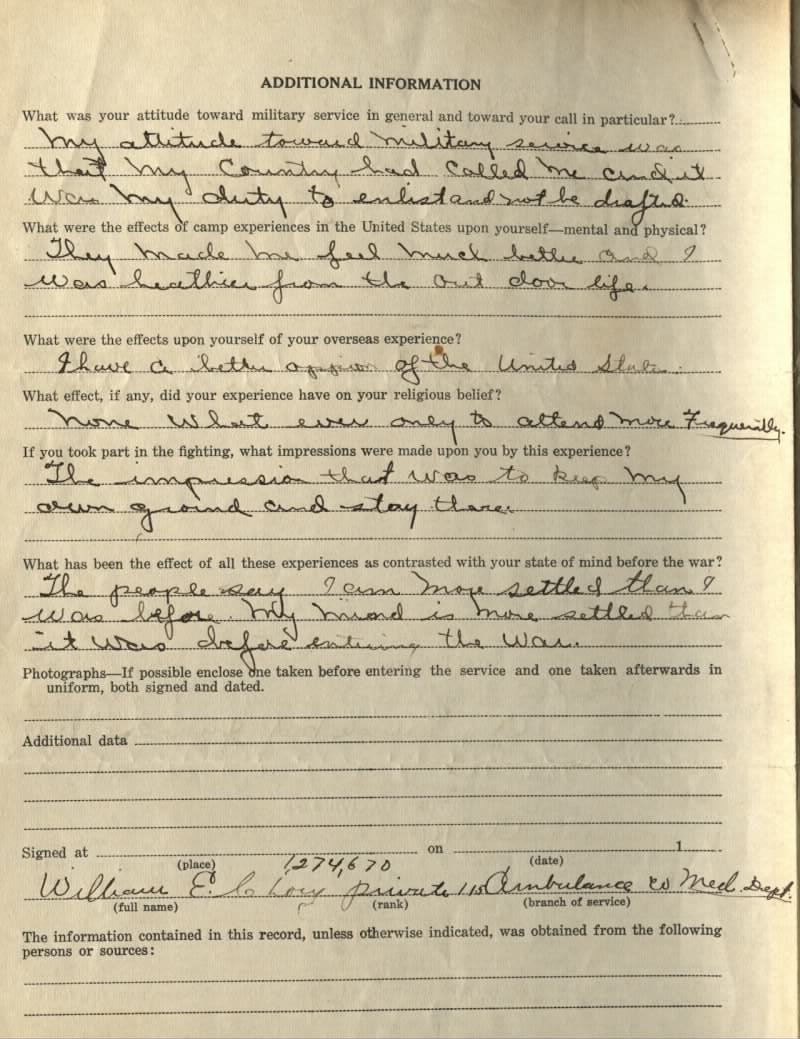 ADDITIONAL INFORMATION
What was your attitude toward military service in general and toward your call in particular?
My attitude toward military service was
that my Country had called me and it
was my duty to enlist and not be drafted.
What were the effects of camp experiences in the United States upon yourself—mental and physical?
They made me feel much better and I
was heathier from the out door life.
What were the effects upon yourself of your overseas experience?
I have a better of the United States.
What effect, if any, did your experience have on your religious belief?
None what ever only to attend more Frequently.
If you took part in the fighting, what impressions were made upon you by this experience?
The impression that was to keep my
own ground and stay there.
What has been the effect of all these experiences as contrasted with your state of mind before the war?
The people say I am more settled than I
was before. My mind is more settled than
it was before entering the War.
Photographs—If possible enclose one taken before entering the service and one taken afterwards in
uniform, both signed and dated.
Additional data
Signed at on 1
(place) 1,274,670 (date)
William E. private 115 Ambulance Co Med. Dept.
(full name) (rank) (branch of service)
The information contained in this record, unless otherwise indicated, was obtained from the following
persons or sources: